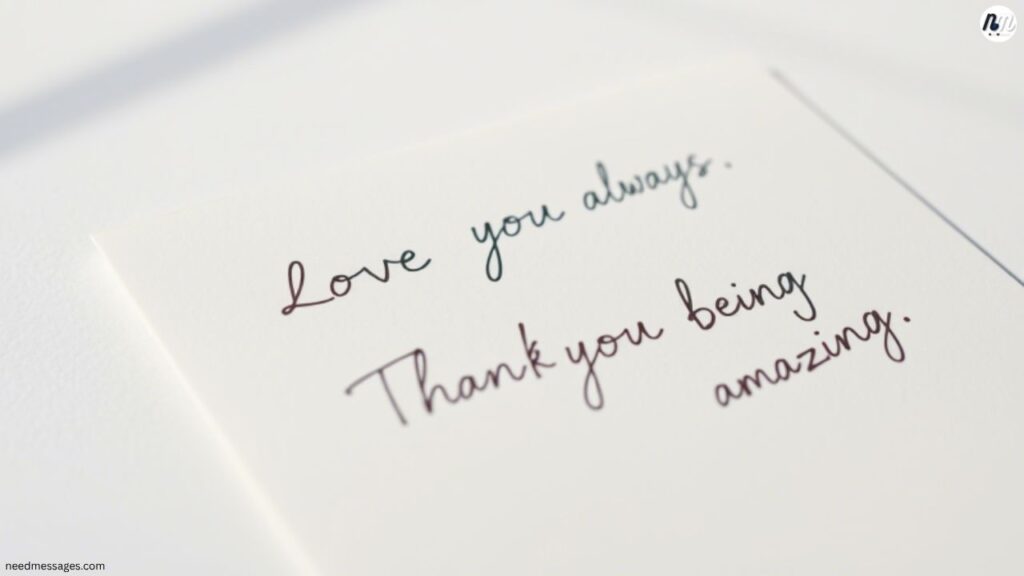 nm
Love you always.
Thank you being
amazing.
needmessages.com